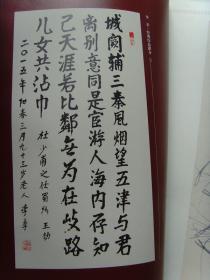 城闕辅三秦風烟望五津与君
离别意同是宦游人海内存知
己天涯若比鄰无为在歧路
儿女共沾巾 杜少甫之任蜀州 王勃
二〇一五年 阳春三月九十三岁老人